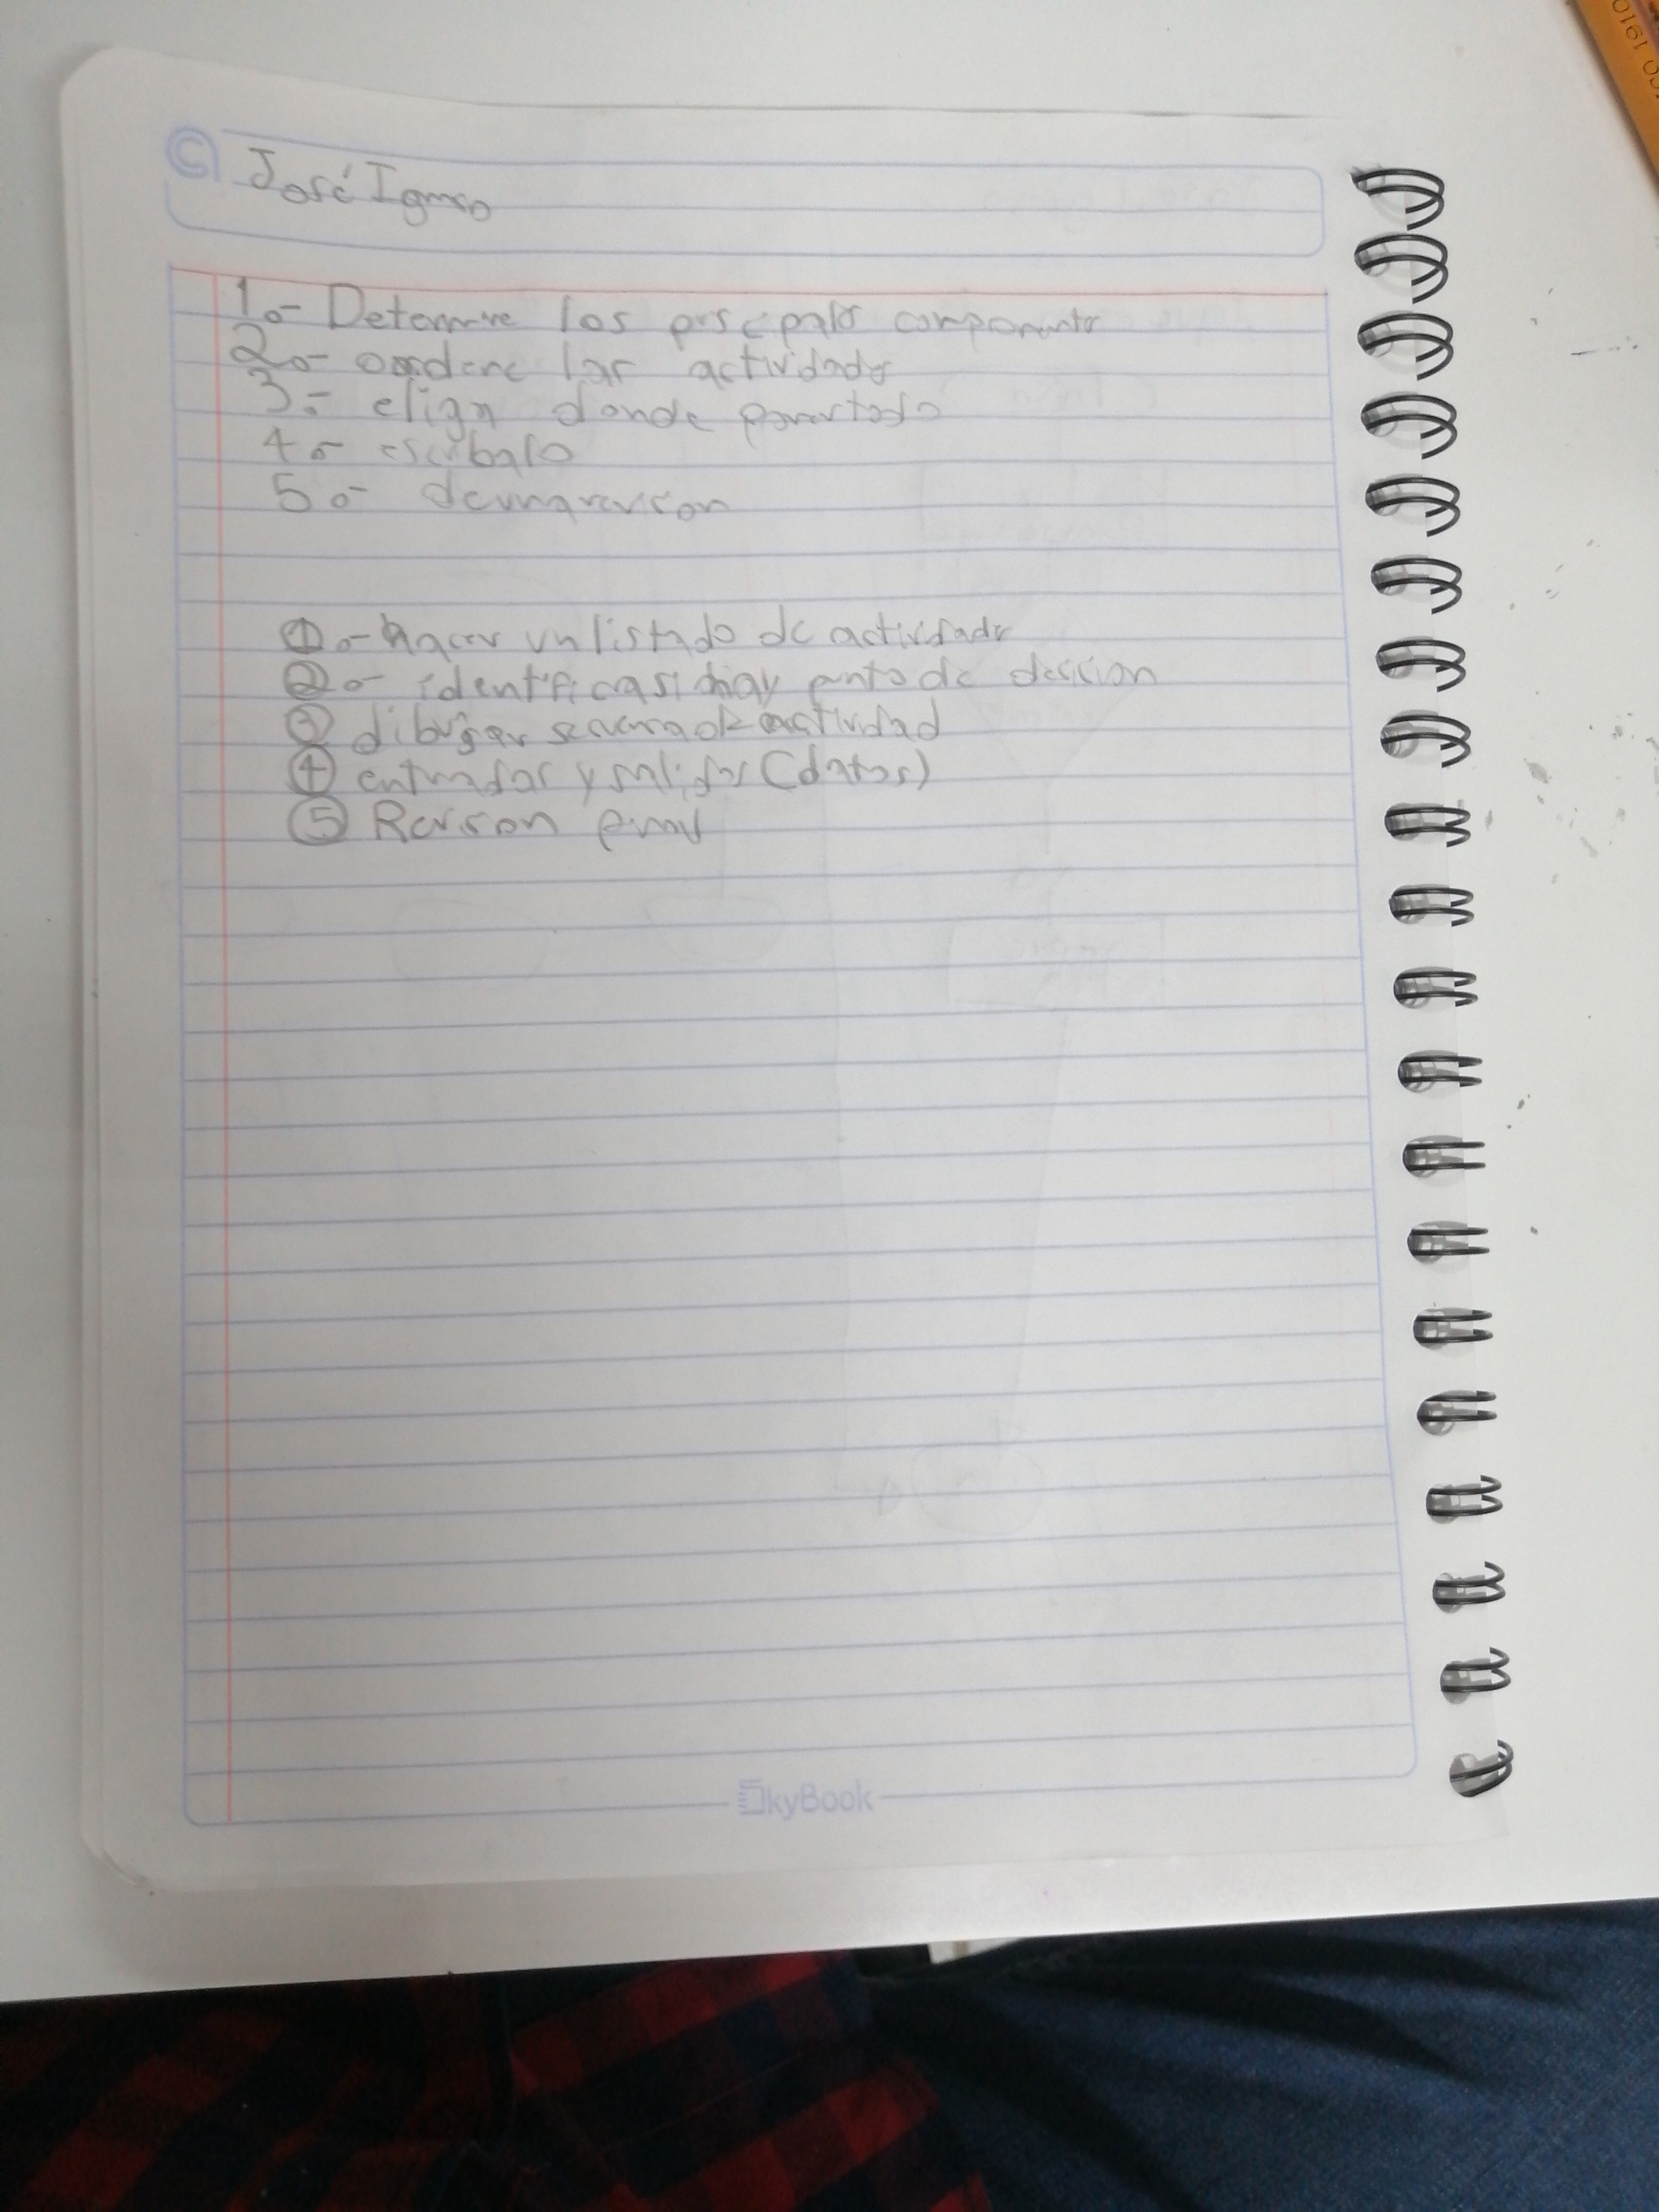 José Ignacio
1.- Determine los principales componentes
2.- ordene las actividades
3.- elign donde
4.- escribalo
5.- de una revision
1.- hacer un listado de actividade
2.- identificar si hay punto de desicion
3 dibujar secuencia de actividad
4 entradas y salidas (datos)
5 Revision
SkyBook